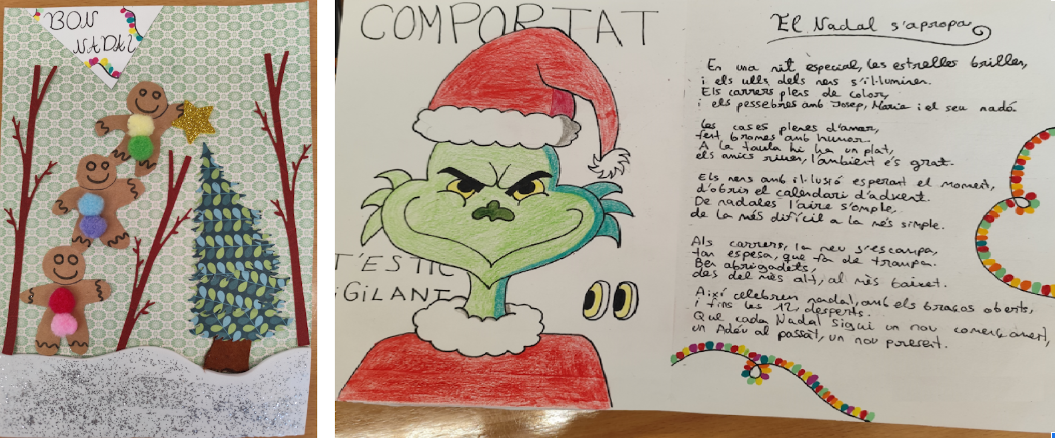 BON
NADAL
COMPORTAT
T'ESTIC
VIGILANT
El Nadal s'apropa
En una nit especial, les estrelles brillen,
i els ulls dels nens s'il·luminen.
Els carrers plens de color,
i els pessebres amb Josep, Maria i el seu nadó.
Les cases plenes d'amor,
fent bromes amb humor.
A la taula hi ha un plat,
els amics riuen, l'ambient és grat.
Els nens amb il·lusió esperant el moment,
d'obrir el calendari d'advent.
De nadales l'aire s'omple,
de la més difícil a la més simple.
Als carrers, la neu s'escampa,
tan espesa, que fa de trampa.
Ben abrigadets,
des del més alt, al més baixet.
Així celebren nadal, amb els braços oberts,
i fins les 12, desperts.
Que cada Nadal sigui un nou començament,
un Adéu al passat, un nou present.